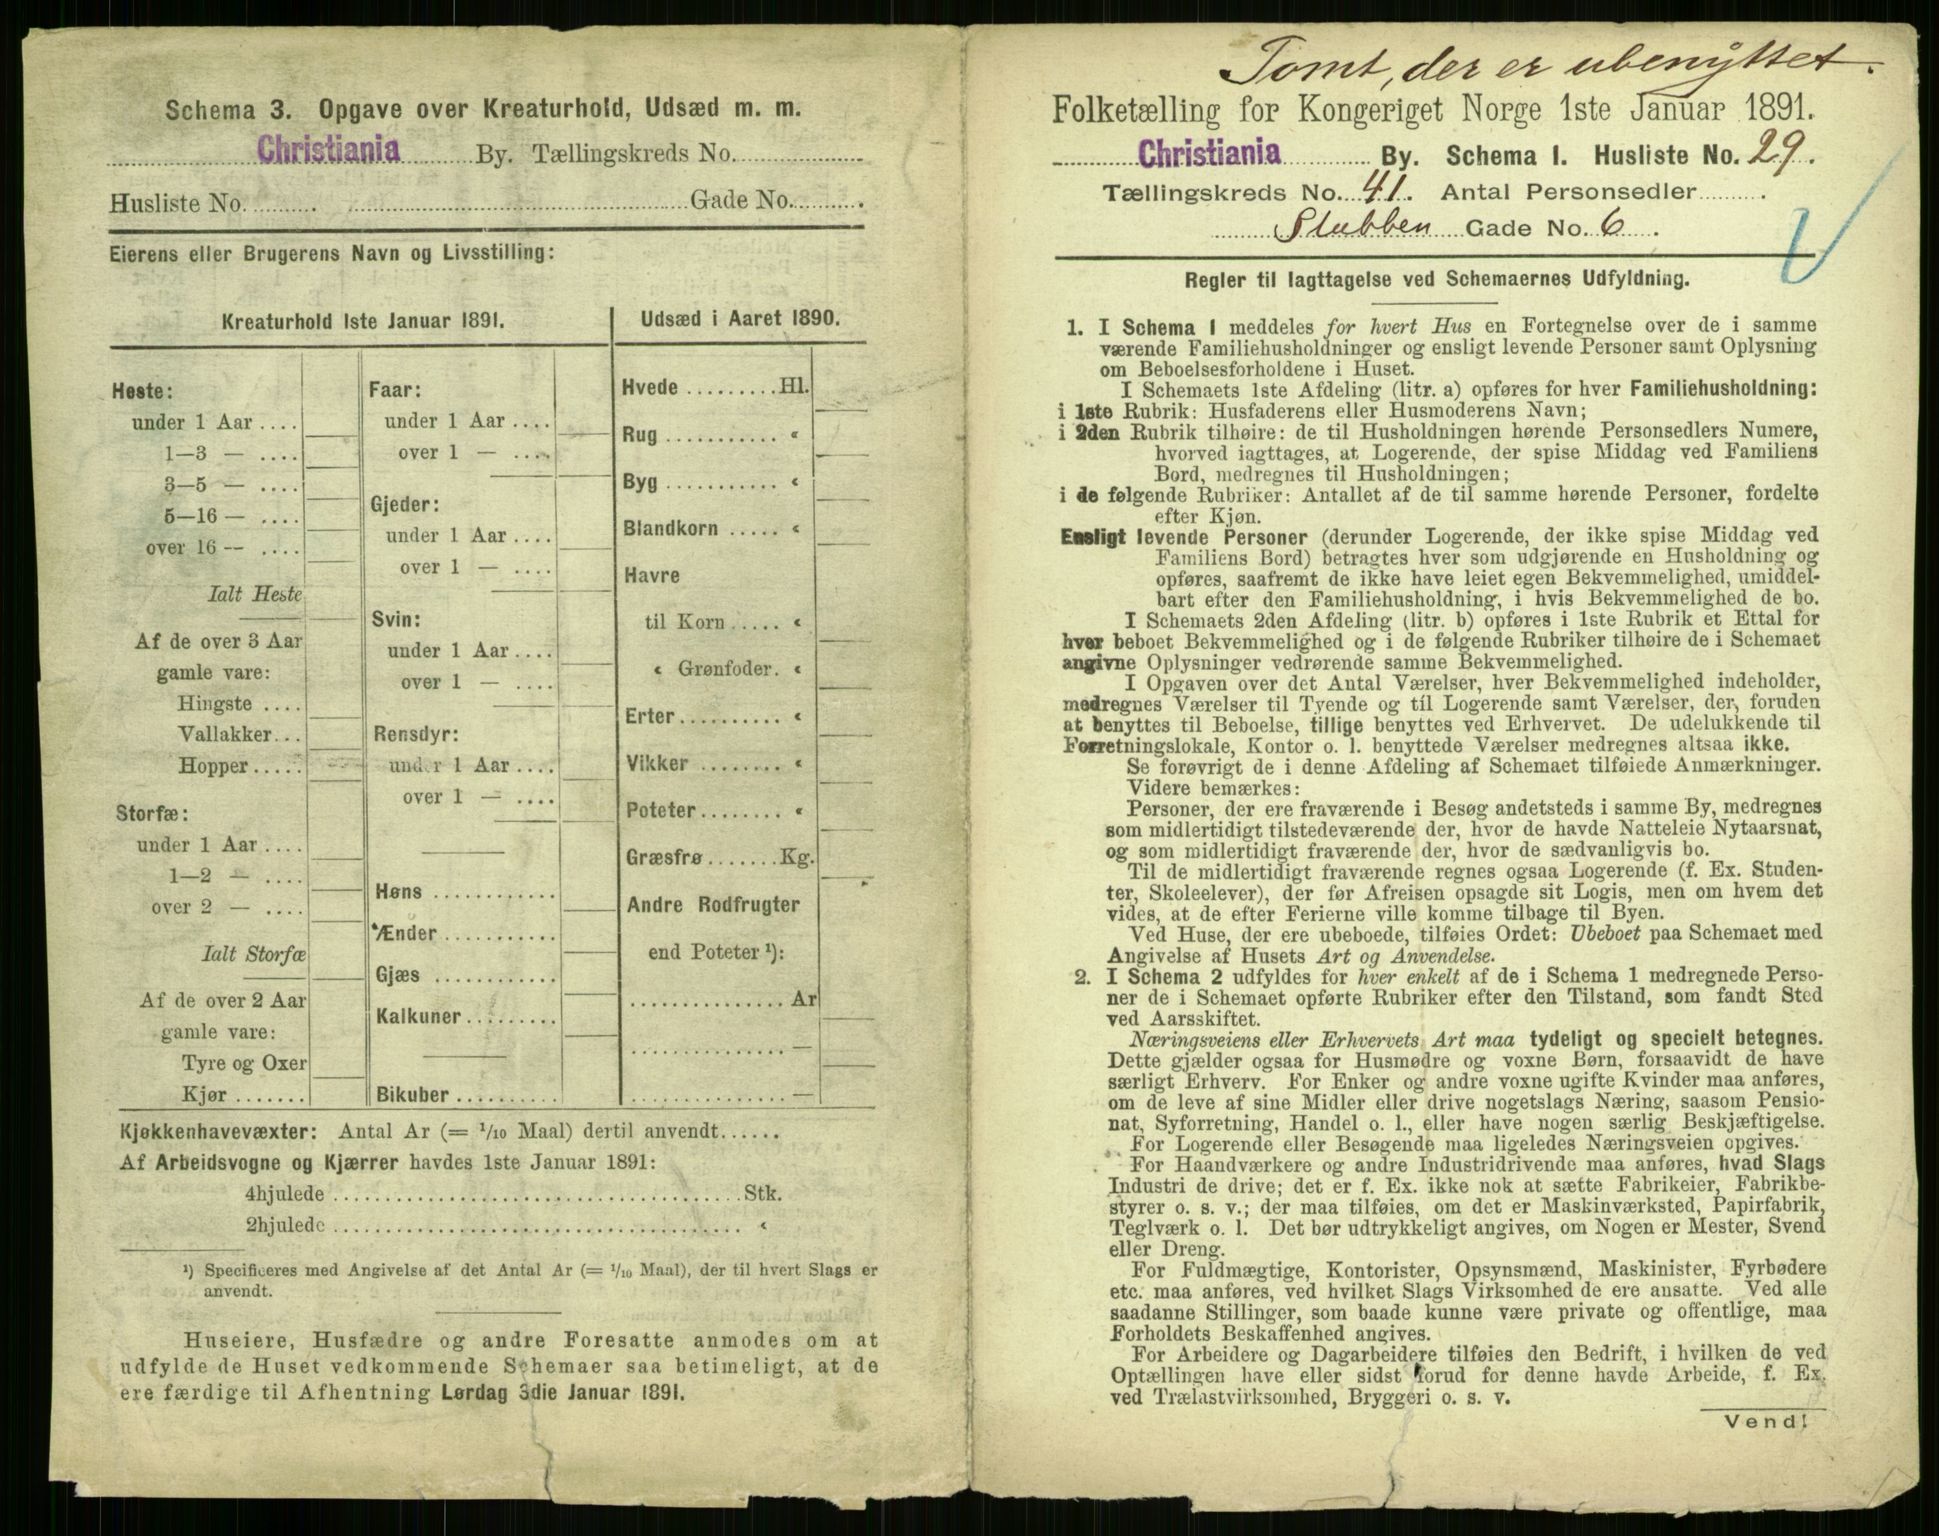 Schema 3. Opgave over Kreaturhold, Udsæd m. m.
Christiania By. Tællingskreds No.
Husliste No. Gade No.
Eierens eller Brugerens Navn og Livsstilling:
Kreaturhold 1ste Januar 1891.
Heste:
under 1 Aar ....
1—3 — ....
3—5 — ....
5—16 — ....
over 16 — ....
Ialt Heste
Af de over 3 Aar
gamle vare:
Hingste ....
Vallakker...
Hopper.....
Storfæ:
under 1 Aar ....
1—2 — ....
over 2 — ....
Ialt Storfæ
Af de over 2 Aar
gamle vare:
Tyre og Oxer
Kjør .......
Faar:
under 1 Aar ....
over 1 — ....
Gjeder:
under 1 Aar ....
over 1 — ....
Svin:
under 1 Aar ....
over 1 — ....
Rensdyr:
under 1 Aar ....
over 1 — ....
Høns ............
Ænder ...........
Gjæs ............
Kalkuner.........
Bikuber ..........
Udsæd i Aaret 1890.
Hvede .........Hl.
Rug ........... «
Byg ........... «
Blandkorn ..... «
Havre
til Korn ..... «
« Grønfoder. «
Erter.......... «
Vikker ........ «
Poteter........ «
Græsfrø .......Kg.
Andre Rodfrugter
end Poteter ¹):
............... Ar
............... —
............... —
Kjøkkenhavevæxter: Antal Ar (= 1/10 Maal) dertil anvendt......
Af Arbeidsvogne og Kjærrer havdes 1ste Januar 1891:
4hjulede ..................................... Stk.
2hjulede ..................................... «
¹) Specificeres med Angivelse af det Antal Ar (= 1/10 Maal), der til hvert Slags er
anvendt.
Huseiere, Husfædre og andre Foresatte anmodes om at
udfylde de Huset vedkommende Schemaer saa betimeligt, at de
ere færdige til Afhentning Lørdag 3die Januar 1891.
Tomt, der er ubenyttet.
Folketælling for Kongeriget Norge 1ste Januar 1891.
Christiania By. Schema 1. Husliste No. 29.
Tællingskreds No. 41. Antal Personsedler .
Stubben Gade No. 6.
Regler til Iagttagelse ved Schemaernes Udfyldning.
1. I Schema 1 meddeles for hvert Hus en Fortegnelse over de i samme
værende Familiehusholdninger og ensligt levende Personer samt Oplysning
om Beboelsesforholdene i Huset.
I Schemaets 1ste Afdeling (litr. a) opføres for hver Familiehusholdning:
i 1ste Rubrik: Husfaderens eller Husmoderens Navn;
i 2den Rubrik tilhøire: de til Husholdningen hørende Personsedlers Numere,
hvorved iagttages, at Logerende, der spise Middag ved Familiens
Bord, medregnes til Husholdningen;
i de følgende Rubriker: Antallet af de til samme hørende Personer, fordelte
efter Kjøn.
Ensligt levende Personer (derunder Logerende, der ikke spise Middag ved
Familiens Bord) betragtes hver som udgjørende en Husholdning og
opføres, saafremt de ikke have leiet egen Bekvemmelighed, umiddel-
bart efter den Familiehusholdning, i hvis Bekvemmelighed de bo.
I Schemaets 2den Afdeling (litr. b) opføres i 1ste Rubrik et Ettal for
hver beboet Bekvemmelighed og i de følgende Rubriker tilhøire de i Schemaet
angivne Oplysninger vedrørende samme Bekvemmelighed.
I Opgaven over det Antal Værelser, hver Bekvemmelighed indeholder,
medregnes Værelser til Tyende og til Logerende samt Værelser, der, foruden
at benyttes til Beboelse, tillige benyttes ved Erhvervet. De udelukkende til
Forretningslokale, Kontor o. l. benyttede Værelser medregnes altsaa ikke.
Se forøvrigt de i denne Afdeling af Schemaet tilføiede Anmærkninger.
Videre bemærkes:
Personer, der ere fraværende i Besøg andetsteds i samme By, medregnes
som midlertidigt tilstedeværende der, hvor de havde Natteleie Nytaarsnat,
og som midlertidigt fraværende der, hvor de sædvanligvis bo.
Til de midlertidigt fraværende regnes ogsaa Logerende (f. Ex. Studen-
ter, Skoleelever), der før Afreisen opsagde sit Logis, men om hvem det
vides, at de efter Ferierne ville komme tilbage til Byen.
Ved Huse, der ere ubeboede, tilføies Ordet: Ubeboet paa Schemaet med
Angivelse af Husets Art og Anvendelse.
2. I Schema 2 udfyldes for hver enkelt af de i Schema 1 medregnede Perso-
ner de i Schemaet opførte Rubriker efter den Tilstand, som fandt Sted
ved Aarsskiftet.
Næringsveiens eller Erhvervets Art maa tydeligt og specielt betegnes.
Dette gjælder ogsaa for Husmødre og voxne Børn, forsaavidt de have
særligt Erhverv. For Enker og andre voxne ugifte Kvinder maa anføres,
om de leve af sine Midler eller drive nogetslags Næring, saasom Pensio-
nat, Syforretning, Handel o. l., eller have nogen særlig Beskjæftigelse.
For Logerende eller Besøgende maa ligeledes Næringsveien opgives.
For Haandværkere og andre Industridrivende maa anføres, hvad Slags
Industri de drive; det er f. Ex. ikke nok at sætte Fabrikeier, Fabrikbe-
styrer o. s. v.; der maa tilføies, om det er Maskinværksted, Papirfabrik,
Teglværk o. l. Det bør udtrykkeligt angives, om Nogen er Mester, Svend
eller Dreng.
For Fuldmægtige, Kontorister, Opsynsmænd, Maskinister, Fyrbødere
etc. maa anføres, ved hvilket Slags Virksomhed de ere ansatte. Ved alle
saadanne Stillinger, som baade kunne være private og offentlige, maa
Forholdets Beskaffenhed angives.
For Arbeidere og Dagarbeidere tilføies den Bedrift, i hvilken de ved
Optællingen have eller sidst forud for denne havde Arbeide, f. Ex.
ved Trælastvirksomhed, Bryggeri o. s. v.
Vend!